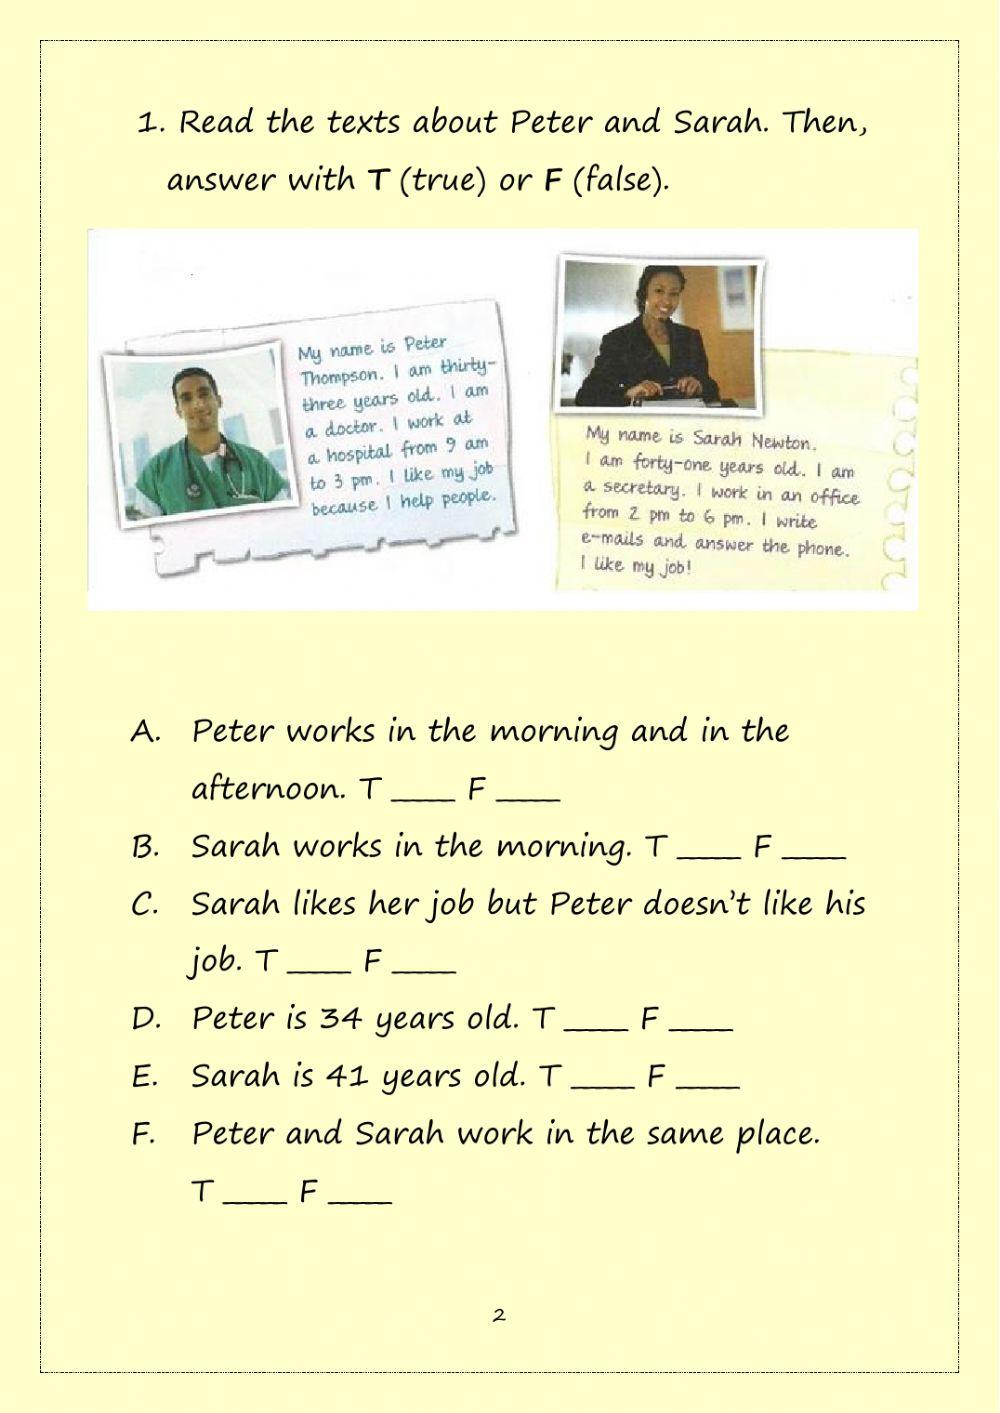 1. Read the texts about Peter and Sarah. Then,
answer with T (true) or F (false).
My name is Peter
Thompson. I am thirty-
three years old. I am
a doctor. I work at
a hospital from 9 am
to 3 pm. I like my job
because I help people.
My name is Sarah Newton.
I am forty-one years old. I am
a secretary. I work in an office
from 2 pm to 6 pm. I write
e-mails and answer the phone.
I like my job!
A. Peter works in the morning and in the
afternoon. T ____ F ____
B. Sarah works in the morning. T ____ F ____
C. Sarah likes her job but Peter doesn't like his
job. T ____ F ____
D. Peter is 34 years old. T ____ F ____
E. Sarah is 41 years old. T ____ F ____
F. Peter and Sarah work in the same place.
T ____ F ____
2